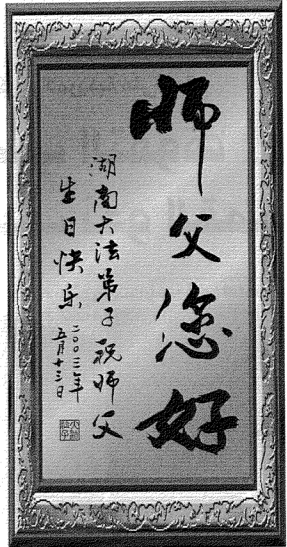 师父您好
湖南大法弟子祝师父
生日快乐
二〇〇三年
五月十三日